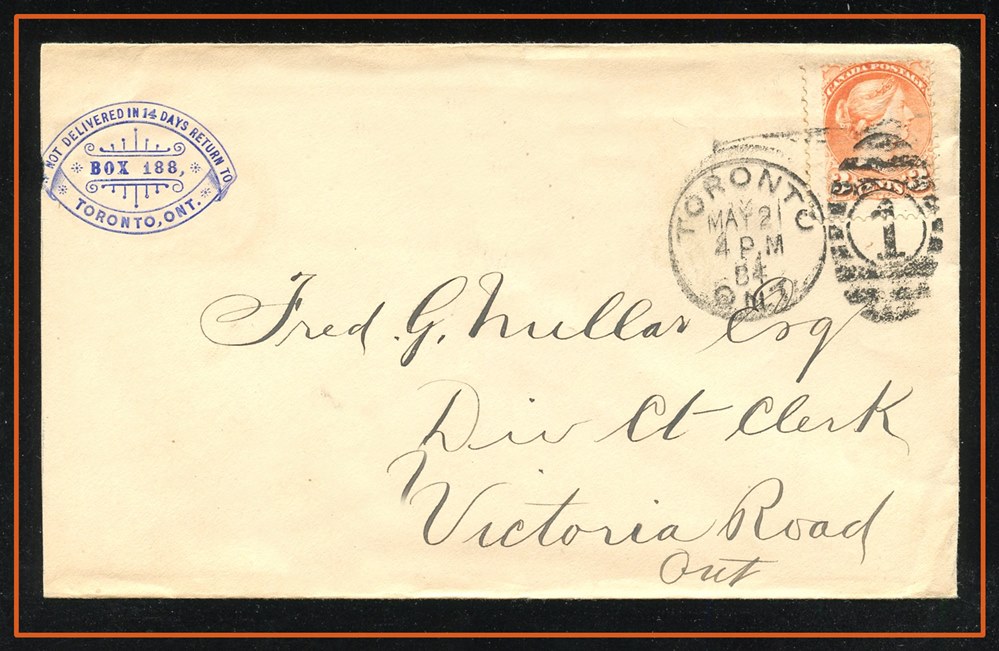 IF NOT DELIVERED IN 14 DAYS RETURN TO
BOX 188,
TORONTO, ONT.
CANADA POSTAGE
3 CENTS 3
TORONTO
MAY 21
4 PM
84
ONT
1
Fred. G. Millar Esq
Div Ct Clerk
Victoria Road
Ont